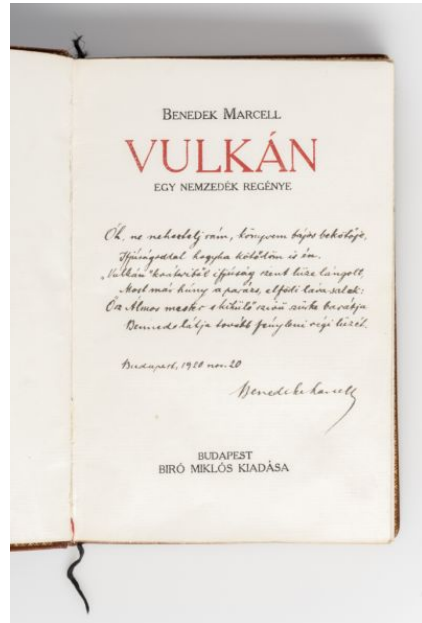 BENEDEK MARCELL
VULKÁN
EGY NEMZEDÉK REGÉNYE
Óh, ne neheztelj reám, könyvem bájos bekötője,
Ifjúságoddal hogyha kötődöm is én.
„Vulkán" ifjúság szent tüze lángolt,
Most már húny a parázs, elfödi láva salak:
Ősz Álmos mester s kihűlő szívű szürke barátja
Benned látja tovább fényleni régi tüzét.
Budapest, 1920 nov. 20
Benedek Marcell
BUDAPEST
BIRÓ MIKLÓS KIADÁSA